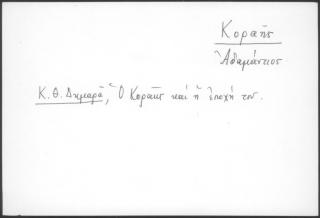 Κοραῆς
Ἀδαμάντιος
Κ. Θ. Δημαρᾶ, Ὁ Κοραῆς καὶ ἡ ἐποχή του.